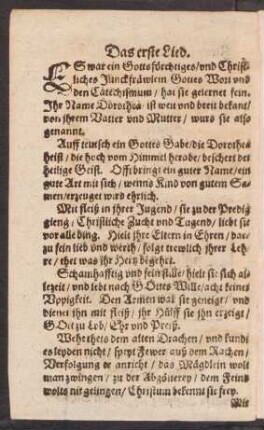 Das erste Lied.
ES war ein Gottsförchtiges/ vnd Christ-
liches Junckfräwlein Gottes Wort vnd
den Catechismum / hat sie gelernet fein.
Ihr Name Dorothea/ ist weit vnd breit bekant/
von jhrem Vatter vnd Mutter / wurd sie also
genannt.
Auff teutsch ein Gottes Gabe/ die Dorothea
heist / die hoch vom Himmel herabe/ beschert der
heilige Geist. Offt bringt ein guter Name/ ein
gute Art mit sich / wenns Kind von gutem Sa-
men/ erzeuget wird ehrlich.
Mit fleiß in jhrer Jugend / sie zu der Predig
gieng / Christliche Zucht vnd Tugend / liebt sie
vor alle ding. Hielt jhre Eltern in Ehren / dar-
zu fein lieb vnd werth / folgt trewlich jhrer Leh-
re / thet was jhr Hertz begehrt.
Schamhafftig vnd fein stille/ hielt sie sich al-
lezeit / vnd lebt nach Gottes Wille/ acht keines
Vppigkeit. Den Armen war sie geneigt / vnd
dienet jhn mit fleiß / jhr Hülff sie jhn erzeigt /
Gott zu Lob / Ehr vnd Preiß.
Wehe thets dem alten Drachen / vnd kundt
es leyden nicht / speyt Fewer auß dem Rachen /
Verfolgung er anricht / das Mägdlein wolt
man zwingen / zu der Abgötterey / dem Feind
wolts nit gelingen / Christum bekennt sie frey.
Mit